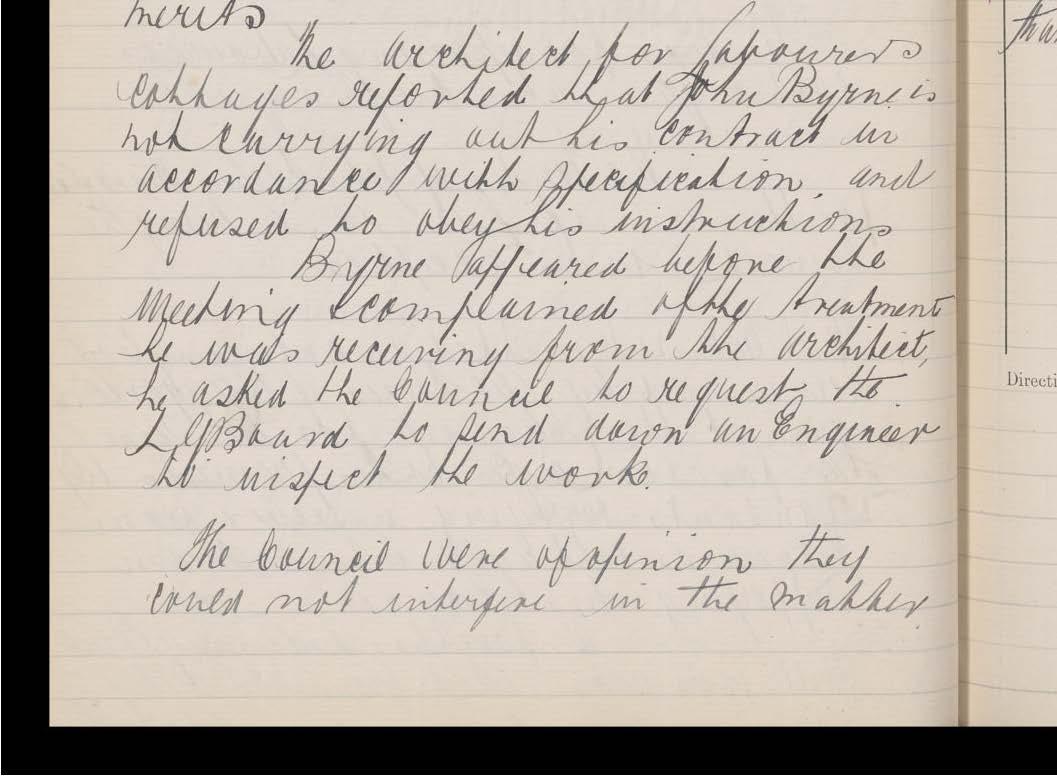 merits
The architect for Labourers
cottages reported that John Byrne is
not carrying out his contract in
accordance with specification, and
refused to obey his instructions
Byrne appeared before the
meeting & complained of the treatment
he was receiving from the architect,
he asked the Council to request the
L G Board to send down an Engineer
to inspect the work.
The Council were of opinion they
could not interfere in the matter.
Directi